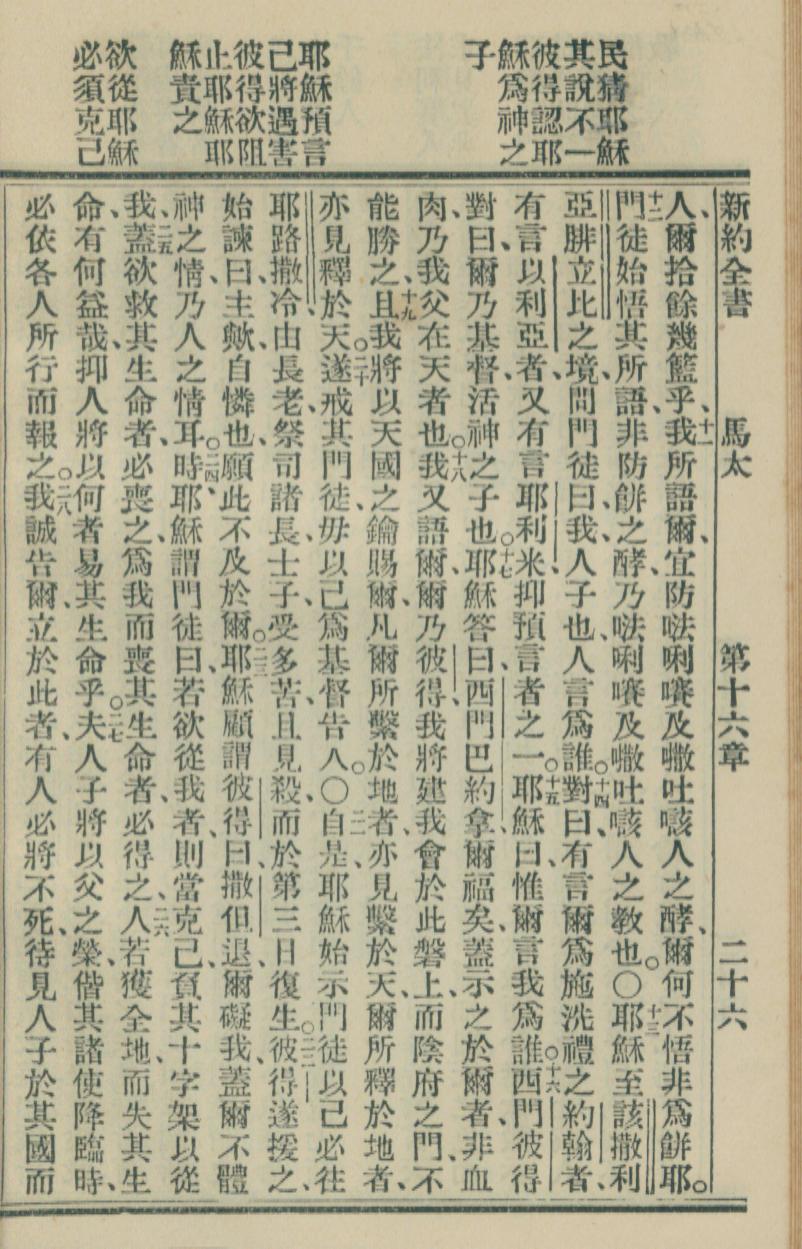 民猜耶穌
其說不一
彼得認耶
穌爲神之
子
耶穌預言
己將遇害
彼得欲阻
止耶穌耶
穌責之
欲從耶穌
必須克己
新約全書 馬太 第十六章 二十六
人、爾拾餘幾籃乎、十一我所語爾、宜防㗁唎㘔及㘔吐㗒人之酵、爾何不悟非爲餅耶。
十二門徒始悟其所語、非防餅之酵、乃㗁唎㘔及㘔吐㗒人之教也。〇十三耶穌至該撒利
亞腓立比之境、問門徒曰、我人子也、人言爲誰、〇十四對曰、有言爾爲施洗禮之約翰者、
有言以利亞者、又有言耶利米、抑預言者之一、〇十五耶穌曰、惟爾言我爲誰、〇十六西門彼得
對曰、爾乃基督活神之子也、〇十七耶穌答曰、西門巴約拿、爾福矣、蓋示之於爾者、非血
肉、乃我父在天者也、〇十八我又語爾、爾乃彼得、我將建我會於此磐上、而陰府之門、不
能勝之、十九且我將以天國之鑰賜爾、凡爾所繫於地者、亦見繫於天、爾所釋於地者、
亦見釋於天、〇二十遂戒其門徒、毋以己爲基督告人。〇二一自是、耶穌始示門徒、以己必往
耶路撒冷、由長老、祭司諸長、士子、受多苦、且見殺、而於第三日復生、〇二二彼得遂援之、
始諫曰、主歟、自憐也、願此不及於爾、〇二三耶穌顧謂彼得曰、撒但退、爾礙我、蓋爾不體
神之情、乃人之情耳、〇二四時耶穌謂門徒曰、若欲從我者、則當克己、負其十字架以從
我、二五蓋欲救其生命者、必喪之、爲我而喪其生命者、必得之、二六人若獲全地、而失其生
命、有何益哉、抑人將以何者易其生命乎、〇二七夫人子將以父之榮、偕其諸使降臨時、
必依各人所行而報之、〇二八我誠告爾、立於此者、有人必將不死、待見人子於其國而